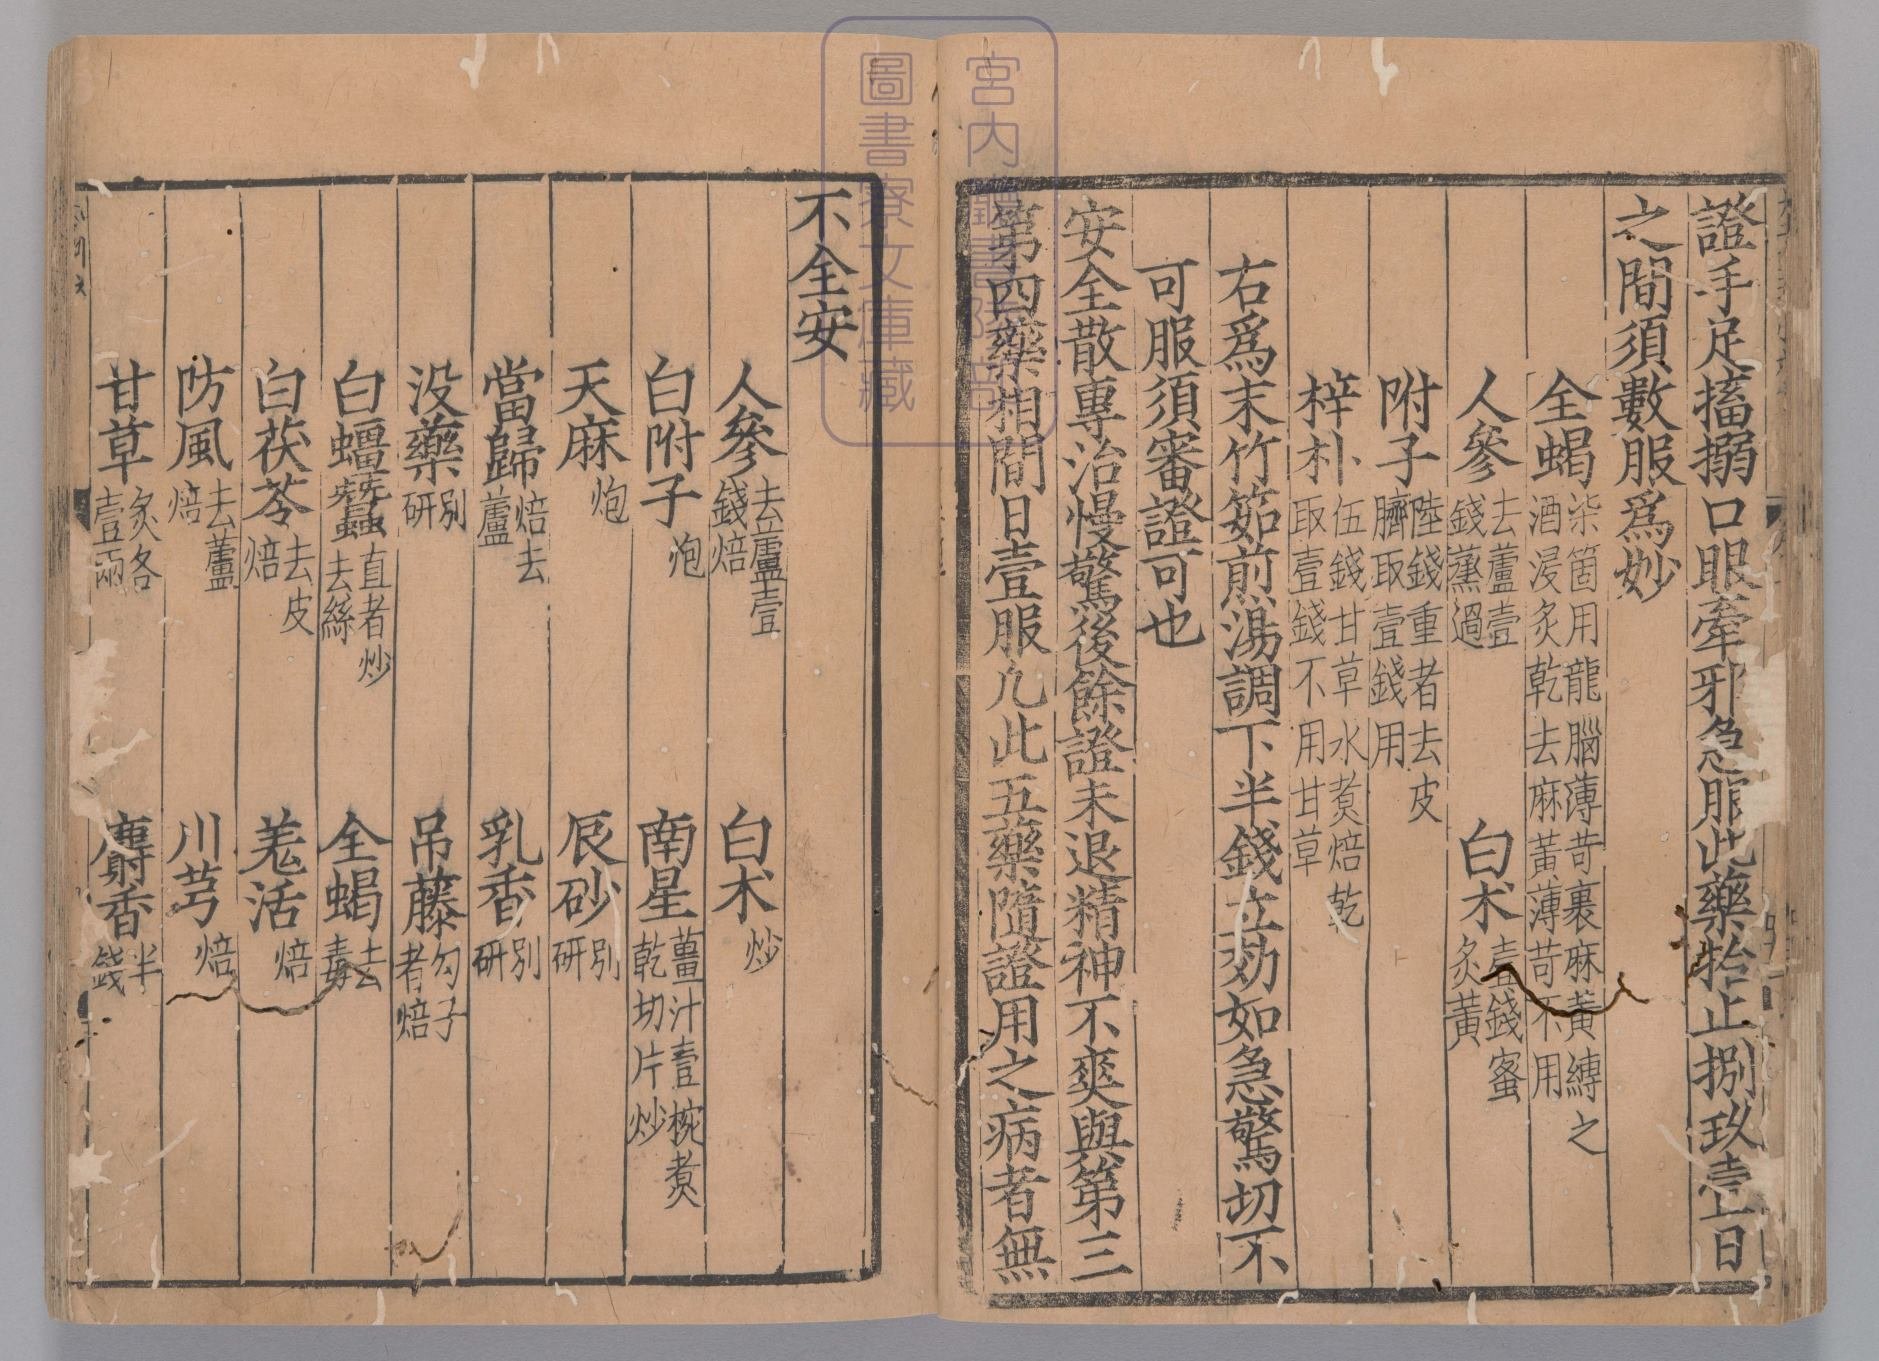 證手足搐搦口眼牽邪急服此藥牯止捌玖壹日
之間須數服爲妙
全蝎柒箇用龍腦薄苛裹麻黃縛之酒浸炙乾去麻黃薄苛不用
人參去蘆壹錢䕲過 白朮壹錢蜜炙黃
附子陸錢重者去皮臍取壹錢用
梓朴伍錢甘草水煑焙乾取壹錢不用甘草
右爲末竹筎煎湯調下半錢立効如急驚切不
可服須審證可也
安全散專治慢驚後餘證未退精神不爽與第三
第四藥相間日壹服凡此五藥隨證用之病者無
不全安
人參去蘆壹錢焙 白朮炒
白附子炮 南星薑汁壹椀煑乾切片炒
天麻炮 辰砂別研
當歸焙去蘆 乳香別研
没藥別研 吊藤勾子者焙
白殭蠶直者炒去絲 全蝎去毒
白茯苓去皮焙 羗活焙
防風去蘆焙 川芎焙
甘草炙各壹兩 麝香半錢
宮内廳書陵部
圖書寮文庫藏